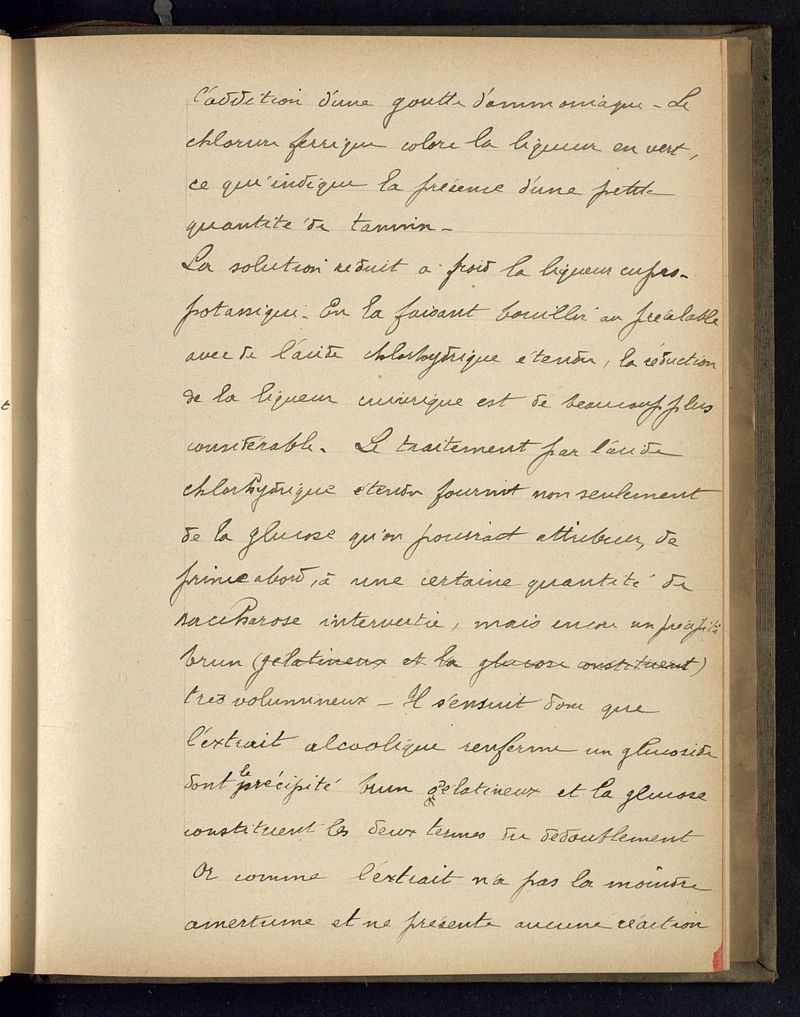 l'addition d'une goutte d'ammoniaque – Le
chlorure ferrique colore la liqueur en vert,
ce qui indique la présence d'une petite
quantité de tannin –
La solution réduit à froid la liqueur cupro-
potassique. En la faisant bouillir au préalable
avec de l'acide chlorhydrique étendu, la réduction
de la liqueur cuivrique est de beaucoup plus
considérable. Le traitement par l'acide
chlorhydrique étendu fournit non seulement
de la glucose qu'on pourrait attribuer, de
prime abord, à une certaine quantité de
saccharose intervertie, mais encore un précipité
brun (gélatineux et la glucose constituent)
très volumineux – Il s'ensuit donc que
l'extrait alcoolique renferme un glucoside
dont le précipité brun gélatineux et la glucose
constituent les deux termes du dédoublement
Or comme l'extrait n'a pas la moindre
amertume et ne présente aucune réaction